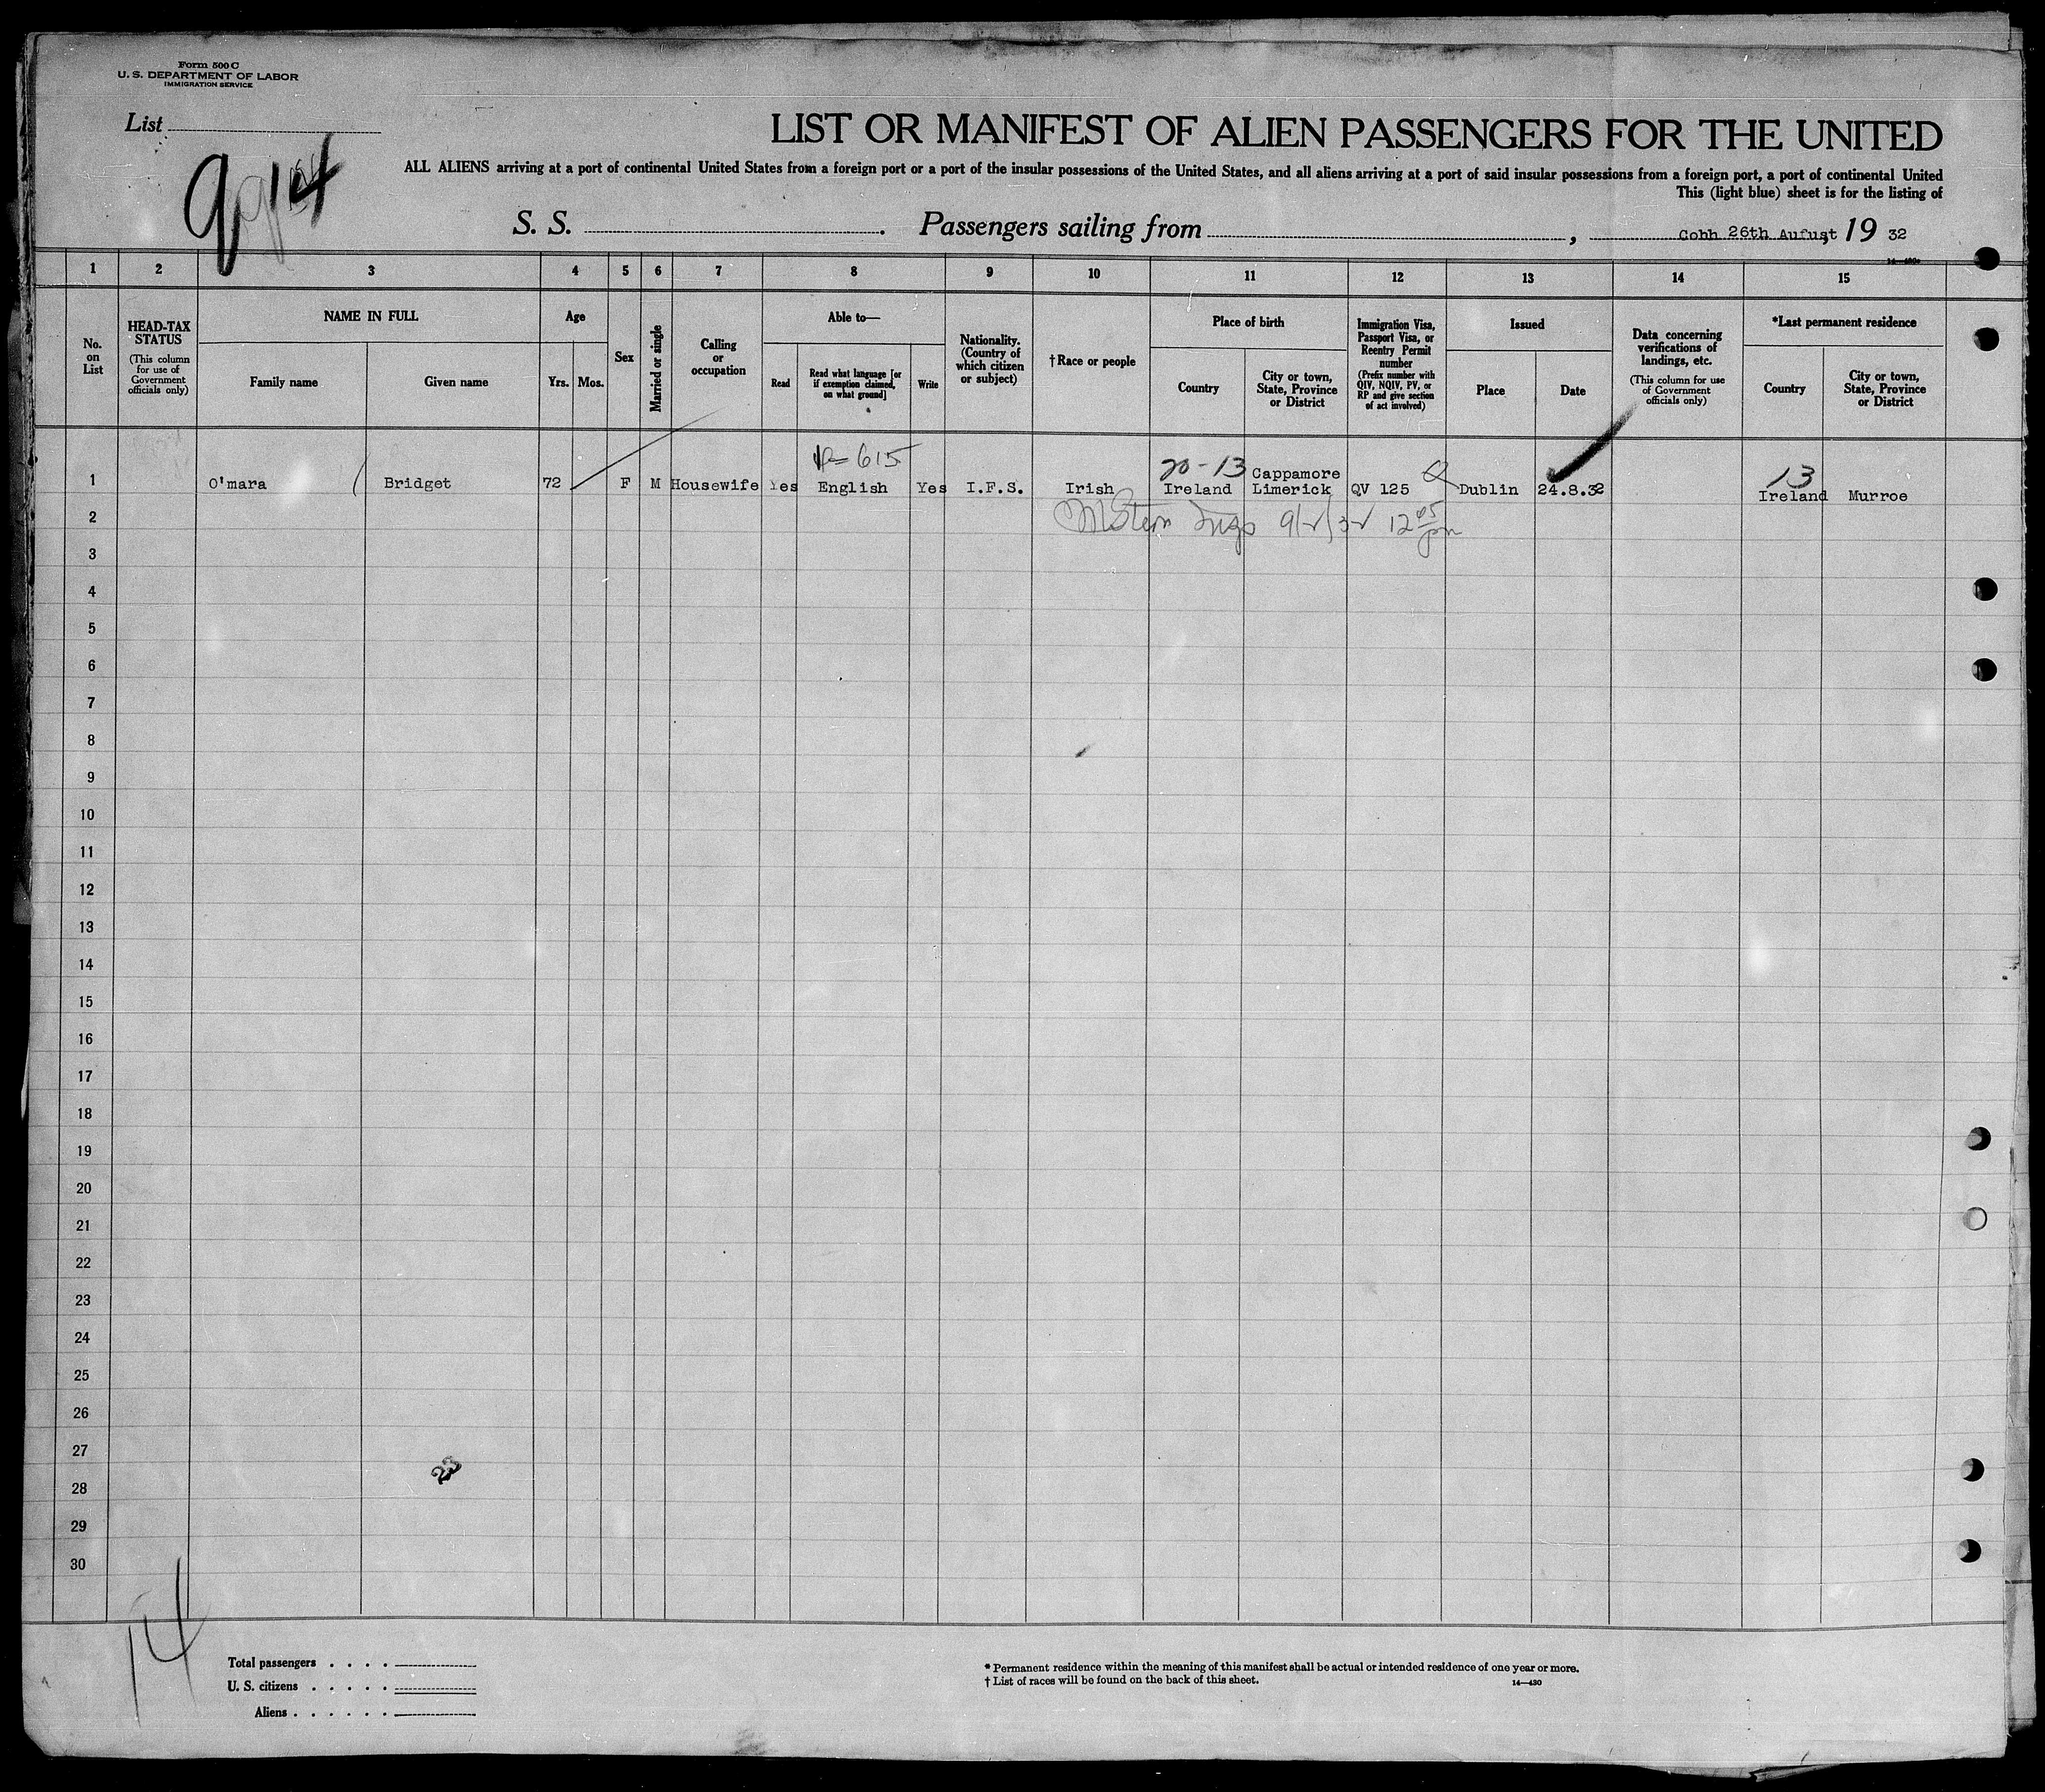 Form 500 C
U. S. DEPARTMENT OF LABOR
IMMIGRATION SERVICE
List
9 14
LIST OR MANIFEST OF ALIEN PASSENGERS FOR THE UNITED
ALL ALIENS arriving at a port of continental United States from a foreign port or a port of the insular possessions of the United States, and all aliens arriving at a port of said insular possessions from a foreign port, a port of continental United
This (light blue) sheet is for the listing of
S. S. . Passengers sailing from , Cobh 26th August 19 32
1 2 3 4 5 6 7 8 9 10 11 12 13 14 15
No. on List
HEAD-TAX STATUS
(This column for use of Government officials only)
NAME IN FULL
Family name
Given name
Age
Yrs. Mos.
Sex
Married or single
Calling or occupation
Able to—
Read
Read what language [or if exemption claimed, on what ground]
Write
Nationality. (Country of which citizen or subject)
†Race or people
Place of birth
Country
City or town, State, Province or District
Immigration Visa, Passport Visa, or Reentry Permit number
(Prefix number with QIV, NQIV, PV, or RP and give section of act involved)
Issued
Place
Date
Data concerning verifications of landings, etc.
(This column for use of Government officials only)
*Last permanent residence
Country
City or town, State, Province or District
615
20-13
13
1 O'mara Bridget 72 F M Housewife Yes English Yes I.F.S. Irish Ireland Cappamore Limerick QV 125 Dublin 24.8.32 Ireland Murroe
2
3
4
5
6
7
8
9
10
11
12
13
14
15
16
17
18
19
20
21
22
23
24
25
26
27
28
29
30
23
14
Total passengers . . . .
U. S. citizens . . . . .
Aliens . . . . . .
* Permanent residence within the meaning of this manifest shall be actual or intended residence of one year or more.
† List of races will be found on the back of this sheet.
14—430